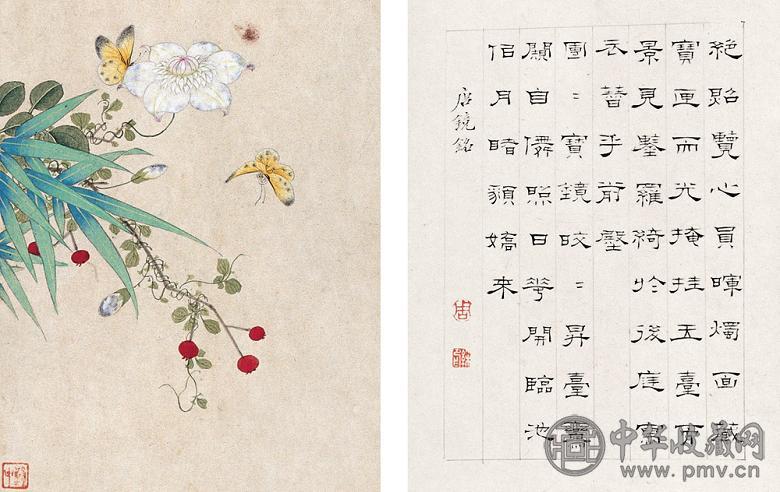 絶照覽心員暉燭面藏
寶匣而光掩挂玉臺而
景見鑒羅綺於後庭寫
衣簪乎前殿
團=寶鏡皎=昇臺鸞
闚自儛照日花開臨池
佀月睹貌嬌來
唐鏡銘
周
中华收藏网
www.pmv.cn